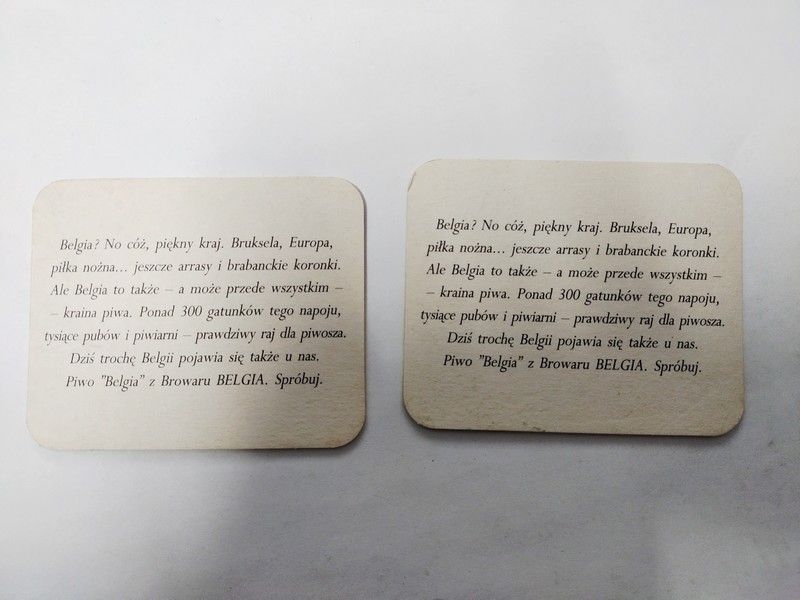 Belgia? No cóż, piękny kraj. Bruksela, Europa,
piłka nożna... jeszcze arrasy i brabanckie koronki.
Ale Belgia to także – a może przede wszystkim –
– kraina piwa. Ponad 300 gatunków tego napoju,
tysiące pubów i piwiarni – prawdziwy raj dla piwosza.
Dziś trochę Belgii pojawia się także u nas.
Piwo "Belgia" z Browaru BELGIA. Spróbuj.
Belgia? No cóż, piękny kraj. Bruksela, Europa,
piłka nożna... jeszcze arrasy i brabanckie koronki.
Ale Belgia to także – a może przede wszystkim –
– kraina piwa. Ponad 300 gatunków tego napoju,
tysiące pubów i piwiarni – prawdziwy raj dla piwosza.
Dziś trochę Belgii pojawia się także u nas.
Piwo "Belgia" z Browaru BELGIA. Spróbuj.